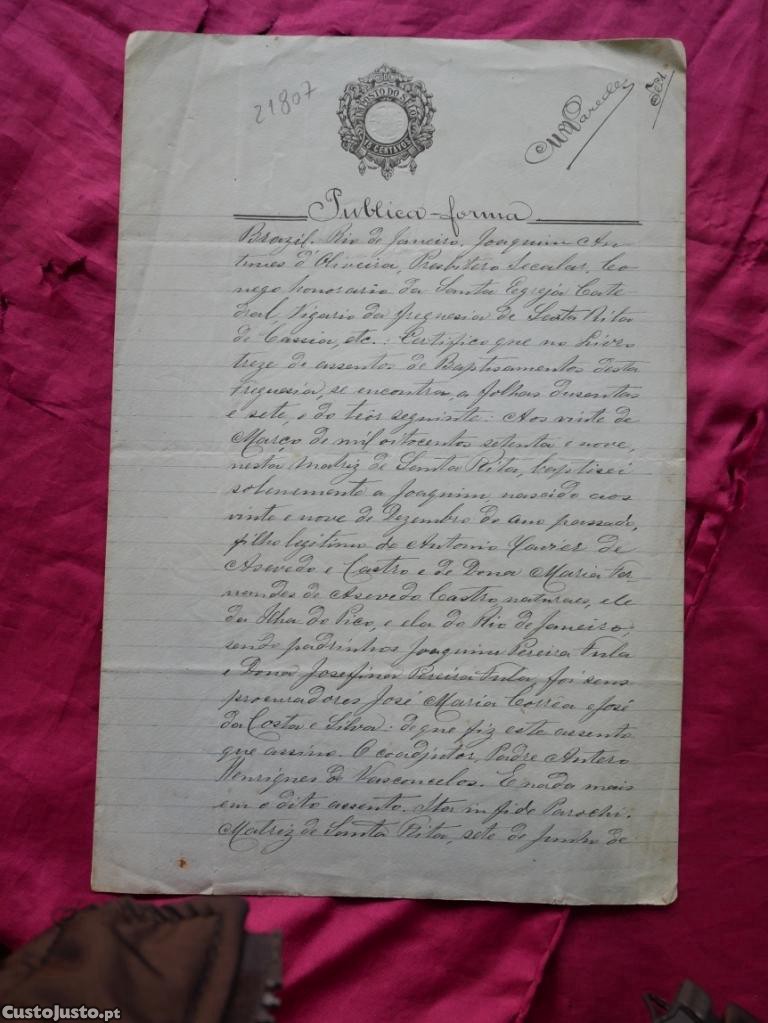 21807
IMPOSTO DO SELO
CENTAVOS
M Paredes
Publica-forma
Brazil. Rio de Janeiro, Joaquim An-
tunes d'Oliveira, Presbitero Secular, Co-
nego honorario da Santa Egreja Cate-
dral, Vigario da freguesia de Santa Rita
de Cassia, etc.: Certifico que no Livro
treze de assentos de Baptisamentos desta
freguesia, se encontra, a folhas dusentas
e sete, o do teôr seguinte: Aos vinte de
Março de mil oitocentos setenta e nove,
nesta Matriz de Santa Rita, baptisei
solenemente a Joaquim, nascido aos
vinte e nove de Dezembro do ano passado,
filho legitimo de Antonio Xavier de
Azevedo e Castro e de Dona Maria Fer-
nandes de Azevedo Castro, naturaes, ele
da Ilha do Pico, e ela do Rio de Janeiro,
sendo padrinhos Joaquim Pereira Fula
e Dona Josefina Pereira Fula, foi seus
procuradores José Maria Corrêa e José
da Costa e Silva: de que fiz este assento
que assino. O coadjutor, Padre Antero
Henriques de Vasconcelos. E nada mais
em o dito assento. Ita in fide Parochi.
Matriz de Santa Rita, sete de Junho de
CustoJusto.pt